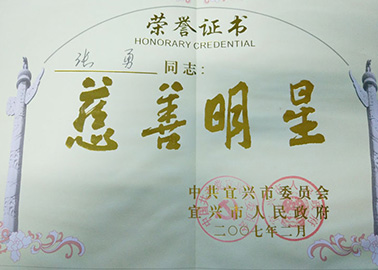 荣誉证书
HONORARY CREDENTIAL
张勇 同志:
慈善明星
中共宜兴市委员会
宜兴市人民政府
二〇〇七年二月